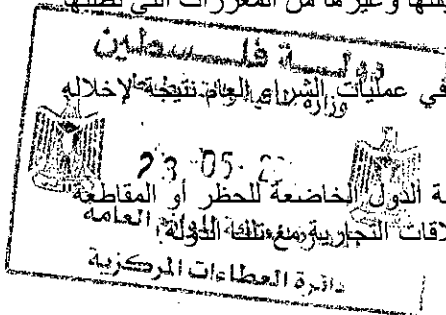 وغيرها من المقررات التي
دولة فلسطين
في عمليات الشراء العام نتيجة لإخلاله
23-05-2
الدول الخاضعة للحظر أو المقاطعة
التجارية مع تلك الدولة؛
العامة
دائرة العطاءات المركزية